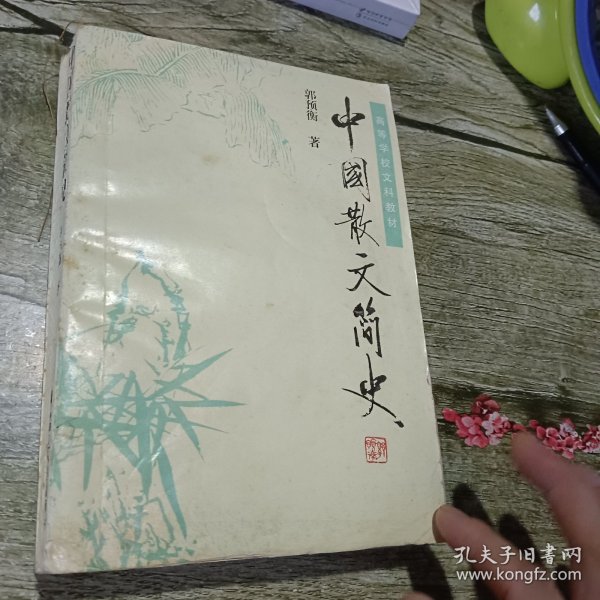 高等学校文科教材
中國散文简史
郭预衡 著
孔夫子旧书网
www.kongfz.com